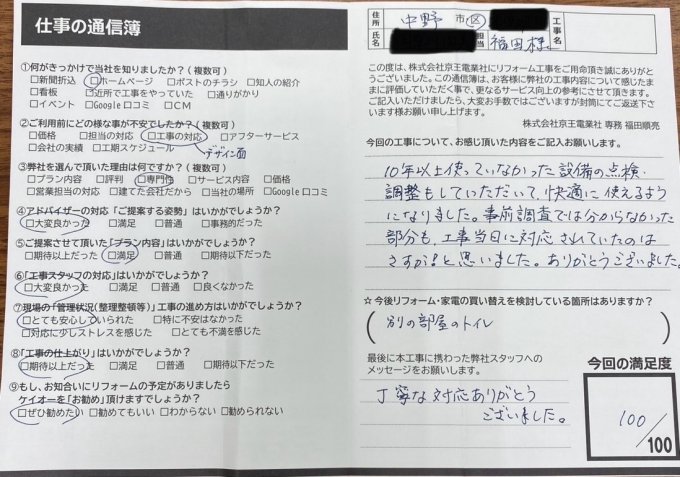 仕事の通信簿
①何がきっかけで当社を知りましたか？（複数可）
□新聞折込 □ホームページ □ポストのチラシ □知人の紹介
□看板 □近所で工事をやっていた □通りがかり
□イベント □Google口コミ □CM
②ご利用前にどの様な事が不安でしたか？（複数可）
□価格 □担当の対応 □工事の対応 □アフターサービス
□会社の実績 □工期スケジュール
デザイン面
③弊社を選んで頂いた理由は何ですか？（複数可）
□プラン内容 □評判 □専門性 □サービス内容 □価格
□営業担当の対応 □建てた会社だから □当社の場所 □Google口コミ
④アドバイザーの対応「ご提案する姿勢」はいかがでしょうか？
□大変良かった □満足 □普通 □事務的だった
⑤ご提案させて頂いた「プラン内容」はいかがでしょうか？
□期待以上だった □満足 □普通 □期待以下だった
⑥「工事スタッフの対応」はいかがでしょうか？
□大変良かった □満足 □普通 □良くなかった
⑦現場の「管理状況（整理整頓等）」工事の進め方はいかがでしょうか？
□とても安心していられた □特に不安はなかった
□対応に少しストレスを感じた □とても不満を感じた
⑧「工事の仕上がり」はいかがでしょうか？
□期待以上だった □満足 □普通 □期待以下だった
⑨もし、お知合いにリフォームの予定がありましたら
ケイオーを「お勧め」頂けますでしょうか？
□ぜひ勧めたい □勧めてもいい □わからない □勧められない
住所 中野 市区 工事名
氏名 担当 福田様
この度は、株式会社京王電業社にリフォーム工事をご用命頂き誠にありがと
うございました。この通信簿は、お客様に弊社の工事内容について感じたま
まに評価していただく事で、更なるサービス向上の参考にさせて頂きます。
ご記入いただけましたら、大変お手数ではございますが封筒にてご返送下さ
います様お願い申し上げます。
株式会社京王電業社 専務 福田順亮
今回の工事について、お感じ頂いた内容をご記入お願いします。
10年以上使っていなかった設備の点検・
調整もしていただいて、快適に使えるよう
になりました。事前調査では分からなかった
部分も、工事当日に対応されていたのは
さすが!と思いました。ありがとうございました。
☆今後リフォーム・家電の買い替えを検討している箇所はありますか？
(別の部屋のトイレ)
最後に本工事に携わった弊社スタッフへの
メッセージをお願いします。
丁寧な対応ありがとう
ございました。
今回の満足度
100/100